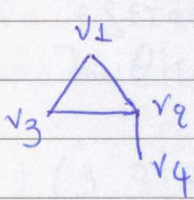 v1
v3
v2
v4